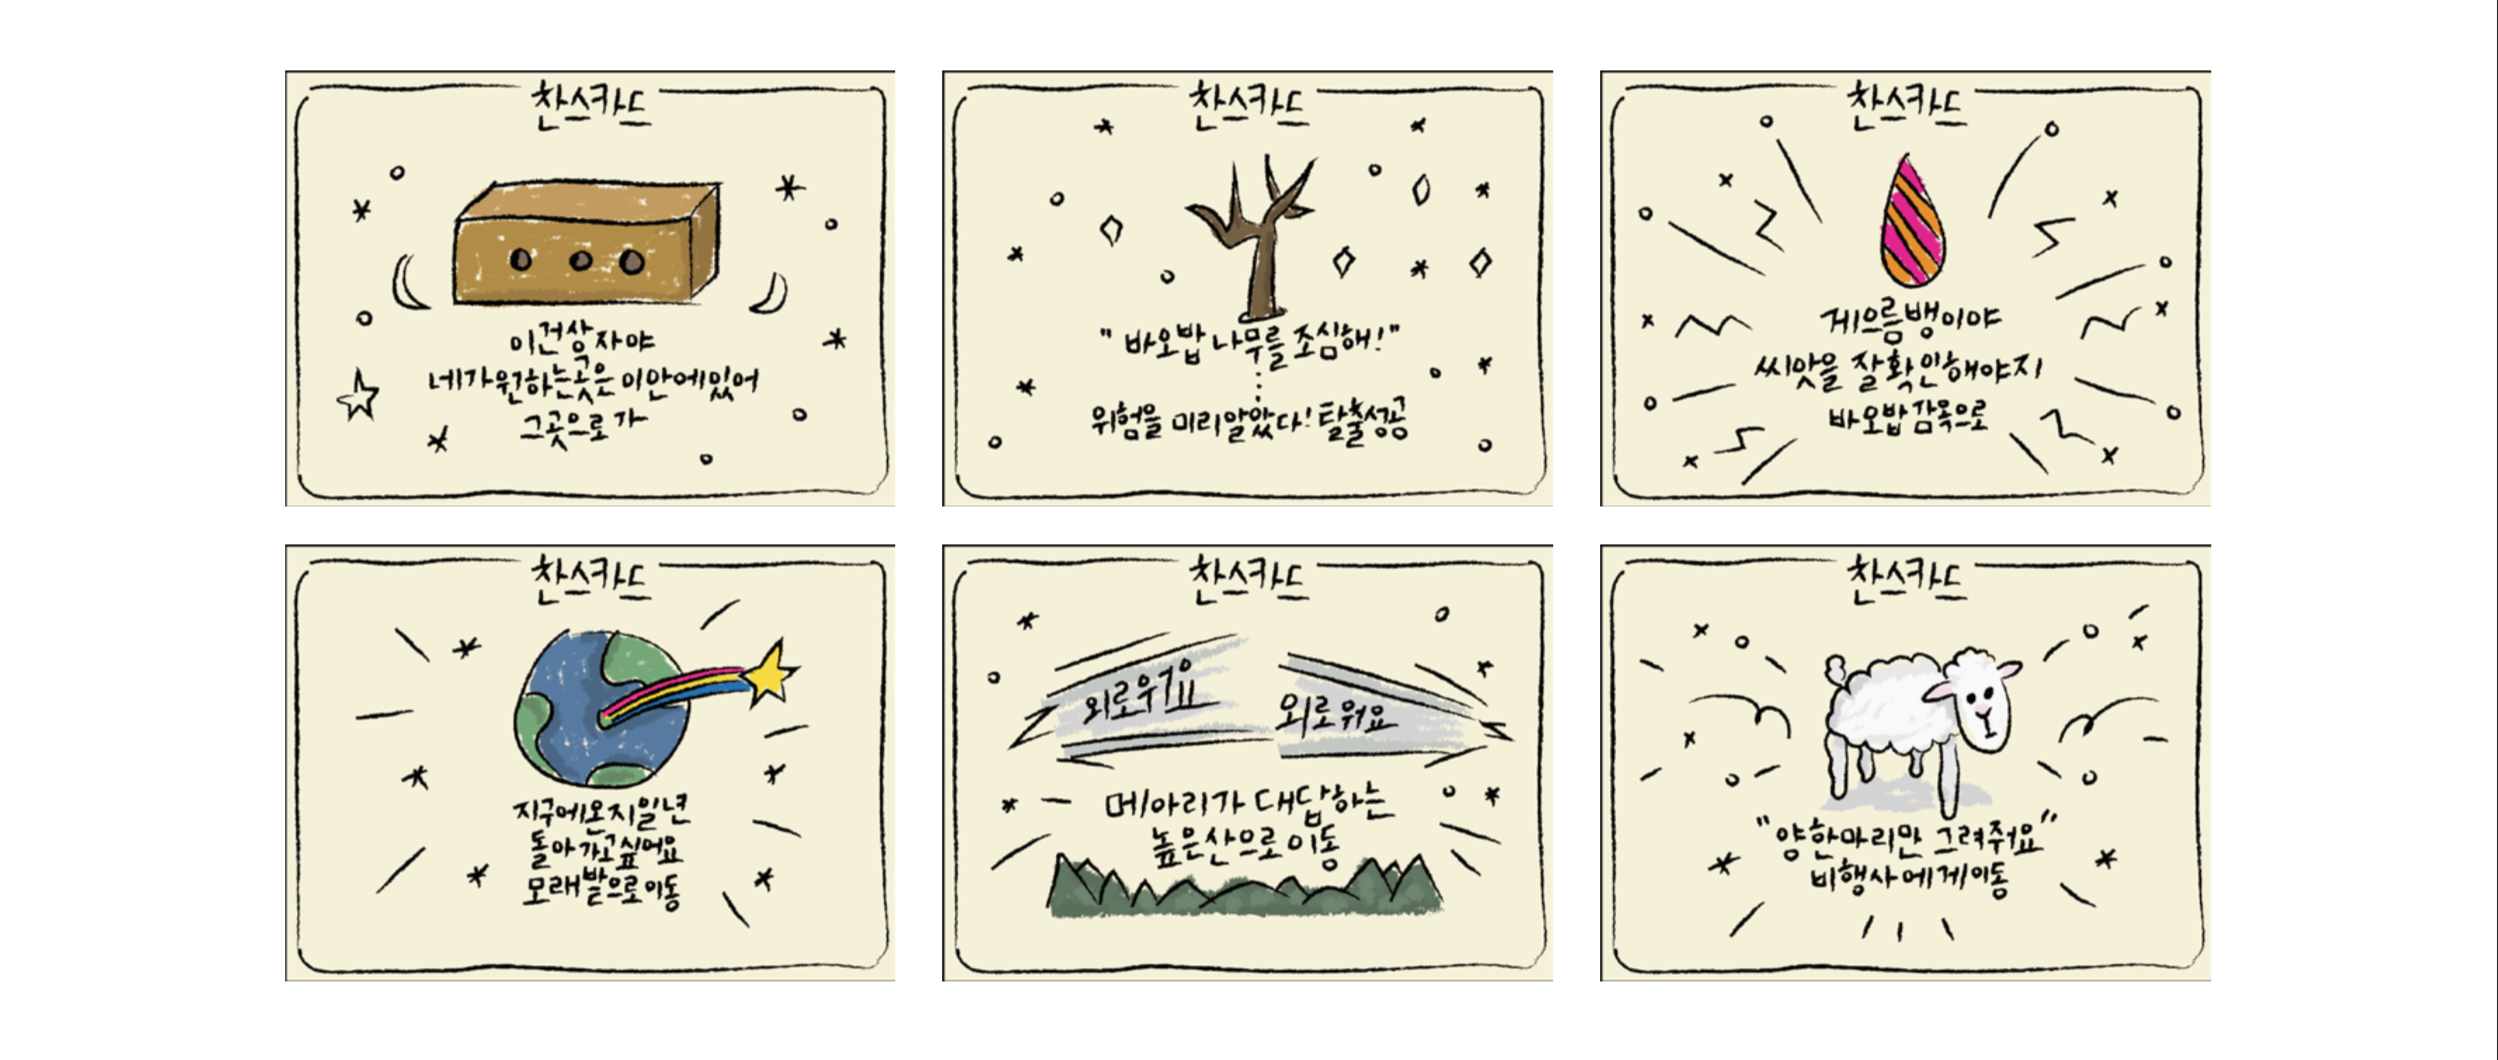 찬스카드
이건상자야
네가원하는곳은 이안에있어
그곳으로 가
찬스카드
"바오밥 나무를 조심해!"
⋮
위험을 미리알았다! 탈출성공
찬스카드
게으름뱅이야
씨앗을 잘 확인해야지
바오밥 감옥으로
찬스카드
지구에온지일년
돌아 가고싶어요
모래밭으로이동
찬스카드
외로워요
외로워요
메아리가 대답하는
높은산으로 이동
찬스카드
"양한마리만 그려줘요"
비행사에게이동